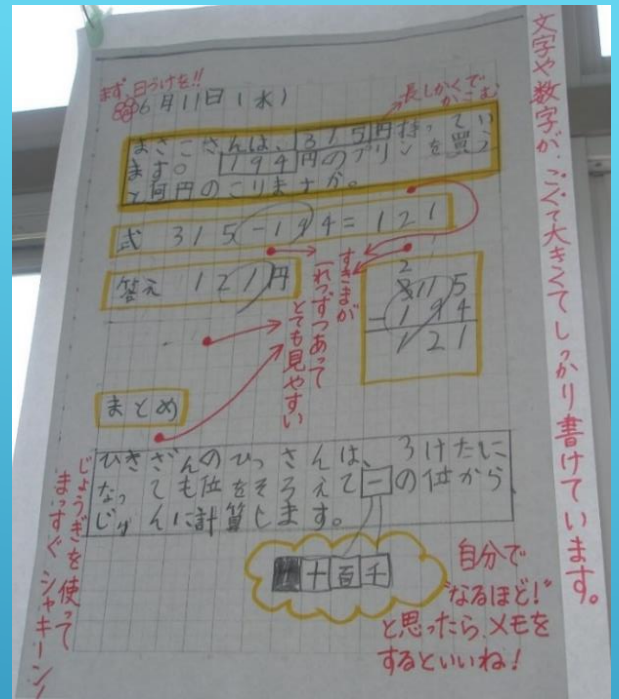 文字や数字が、こくて大きくてしっかり書けています。
まず、日づけを!!
6月11日(水)
長しかくで
かこむ
まさこさんは、315円持ってい
ます。194円のプリンを買う
と何円のこりますか。
式 315-194=121
答え 121円
2
315
-194
121
すきまが
一れつずつあって
とても見やすい
まとめ
ひきざんのひっさんは、3けたに
なっても位をそろえて一の位から
じゅんに計算します。
一十百千
じょうぎを使って
まっすぐシャキーン!
自分で
"なるほど!"
と思ったら、メモを
するといいね!